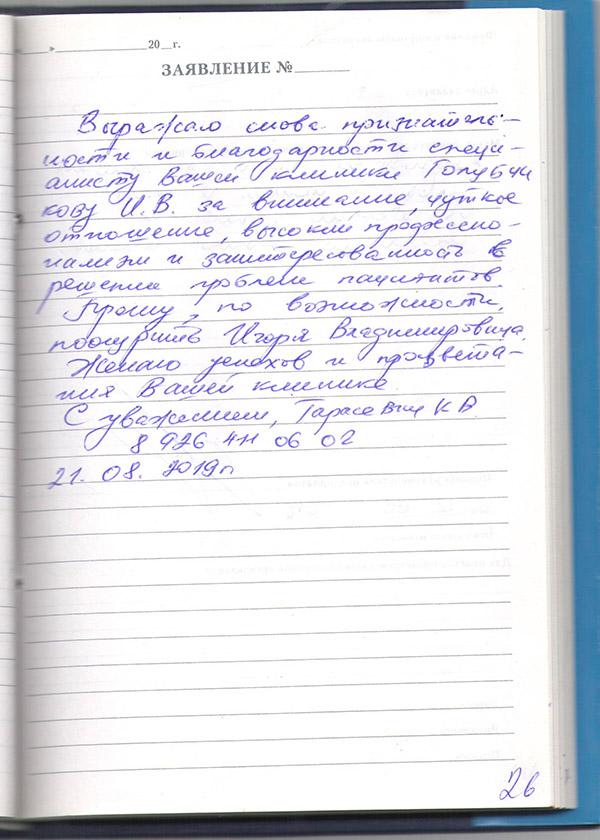 20 г.
ЗАЯВЛЕНИЕ №
Выражаю слова признатель-
ности и благодарности специ-
алисту Вашей клиники Голубчи
кову И.В. за внимание, чуткое
отношение, высокий профессио-
нализм и заинтересованность в
решении проблем пациентов.
Прошу, по возможности,
поощрить Игоря Владимировича.
Желаю успехов и процвета-
ния Вашей клинике.
С уважением, Тарасевич К А
8 926 411 06 02
21. 08. 2019г
26